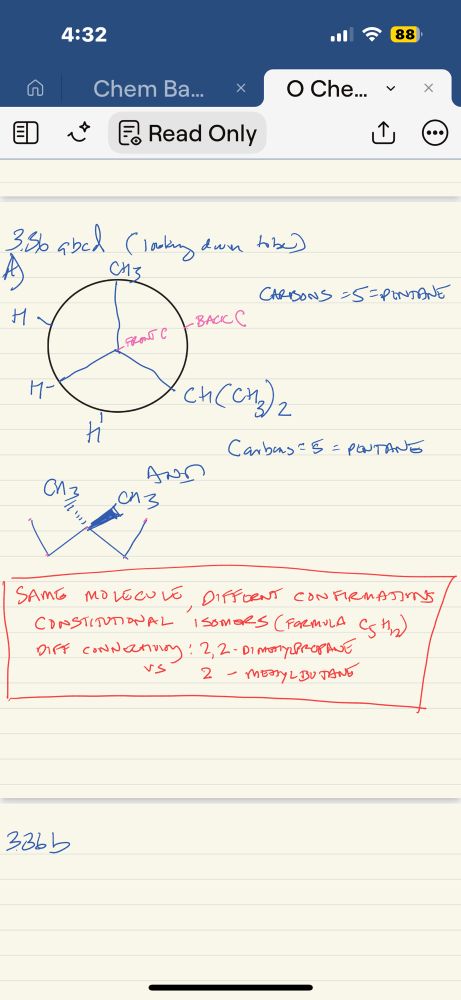 4:32
88
Chem Ba... × O Che... ×
Read Only
3.36 abcd (looking down
A)
CH3
CARBONS = 5 = PENTANE
H
BACK C
FRONT C
H
CH(CH3)2
H
Carbons = 5 = PENTANE
AND
CH3
CH3
SAME MOLECULE, DIFFERENT CONFIRMATIONS
CONSTITUTIONAL ISOMERS (FORMULA C5H12)
DIFF CONNECTIVITY: 2,2-DIMETHYLPROPANE
VS 2-METHYLBUTANE
3.36 b